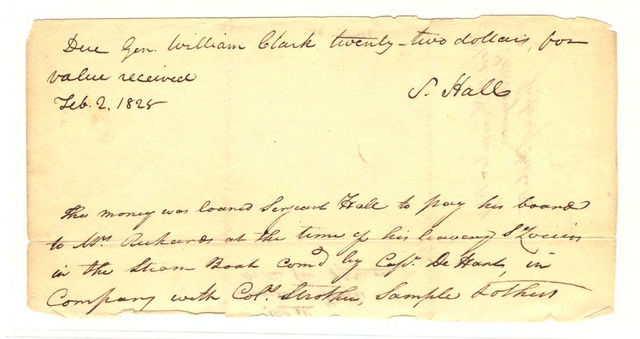 Due Gen. William Clark twenty-two dollars, for
value received
Feb. 2, 1828
S. Hall
This money was loaned Sergeant Hall to pay his board
to Mrs Richards at the time of his leaveing St Louis
in the Steam Boat com'd by Cap. De Hart, in
Company with Col. Strother, Sample & others